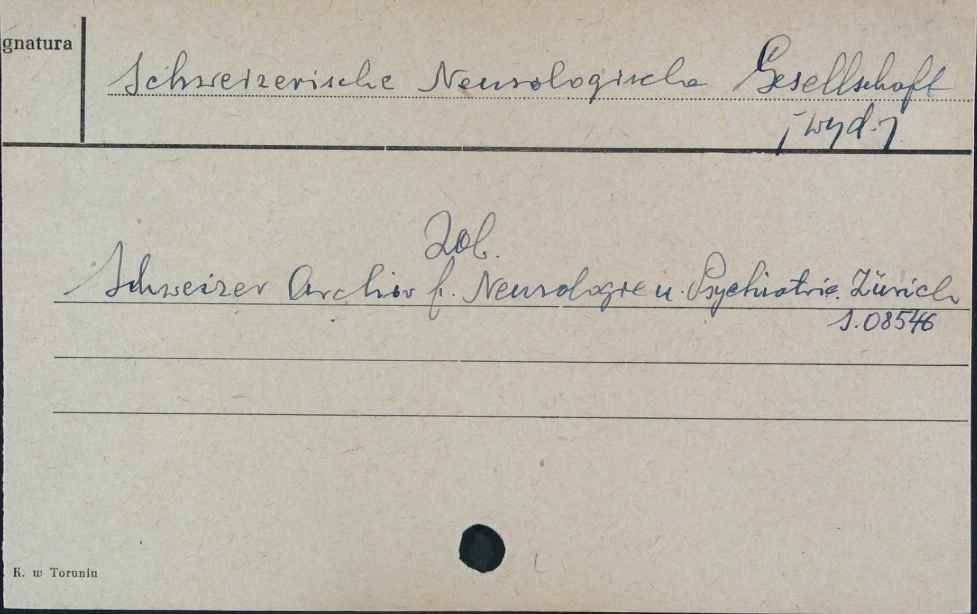 gnatura
Schweizerische Neurologische Gesellschaft
[wyd.]
Zob.
Schweizer Archiv f. Neurologie u. Psychiatrie. Zürich
S.08546
K. w Toruniu